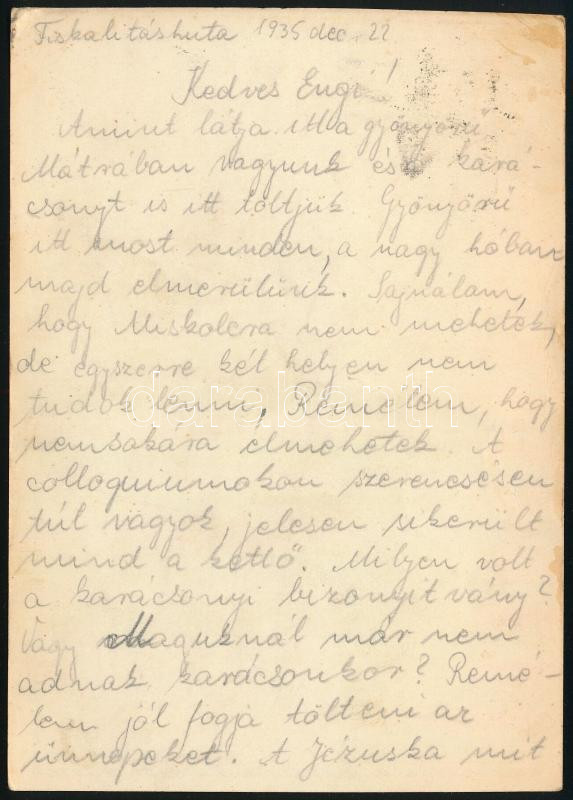 Fiskalitáshuta 1935 dec. 22
Kedves Engi!
Amint látja itt a gyönyörű
Mátrában vagyunk és a kará-
csonyt is itt töltjük. Gyönyörű
itt most minden, a nagy hóban
majd elmerülünk. Sajnálom,
hogy Miskolcra nem mehetek,
de egyszerre két helyen nem
tudok lenni, Remélem, hogy
nemsokára elmehetek. A
colloquiumokon szerencsésen
túl vagyok, jelesen sikerült
mind a kettő. Milyen volt
a karácsonyi bizonyítvány?
Vagy Maguknál már nem
adnak karácsonkor? Remé-
lem jól fogja tölteni az
ünnepeket. A Jézuska mit
darabanth